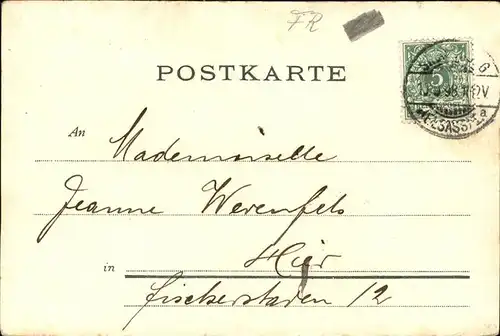 FR
POSTKARTE
5
(ELSASS)
a
An Mademoiselle
Jeanne Werenfels
in Hier
Fischerstaden 12